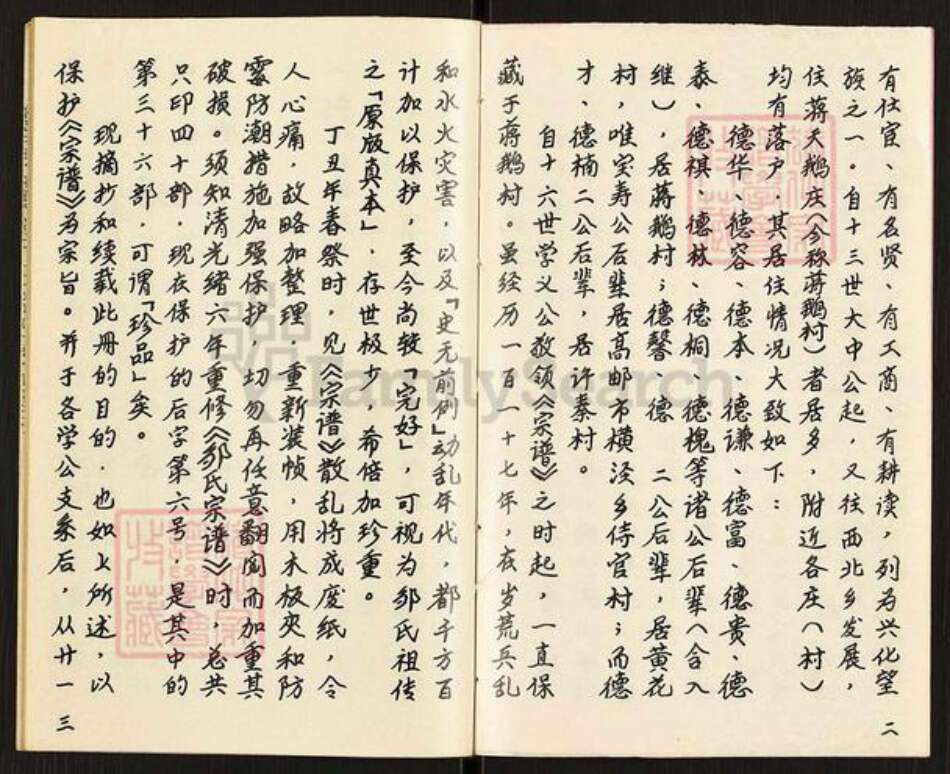 有仕宦、有名贤、有工商、有耕读，列为兴化望
族之一。自十三世大中公起，又往西北乡发展，
住蒋天鹅庄（今称蒋鹅村）者居多，附近各庄（村）
均有落户，其居住情况大致如下：
德华、德容、德本、德谦、德富、德贵、德
泰、德祺、德林、德桐、德槐等诸公后辈（含入
继），居蒋鹅村；德馨、德　二公后辈，居黄花
村，唯宝寿公后辈居高邮市横泾乡侍官村；而德
才、德楠二公后辈，居许秦村。
自十六世学义公敬领《宗谱》之时起，一直保
藏于蒋鹅村。虽经历一百一十七年，在岁荒兵乱
二
和水火灾害，以及「史无前例」动乱年代，都千方百
计加以保护，至今尚较「完好」，可视为邹氏祖传
之「原版真本」，存世极少，希倍加珍重。
丁丑年春祭时，见《宗谱》散乱将成废纸，令
人心痛，故略加整理，重新装帧，用木板夹和防
霉防潮措施加强保护，切勿再任意翻阅而加重其
破损。须知清光绪六年重修《邹氏宗谱》时，总共
只印四十部，现在保护的后字第六号，是其中的
第三十六部，可谓「珍品」矣。
现摘抄和续载此册的目的，也如上所述，以
保护《宗谱》为宗旨。并于各学公支系后，从廿一
三
FamilySearch